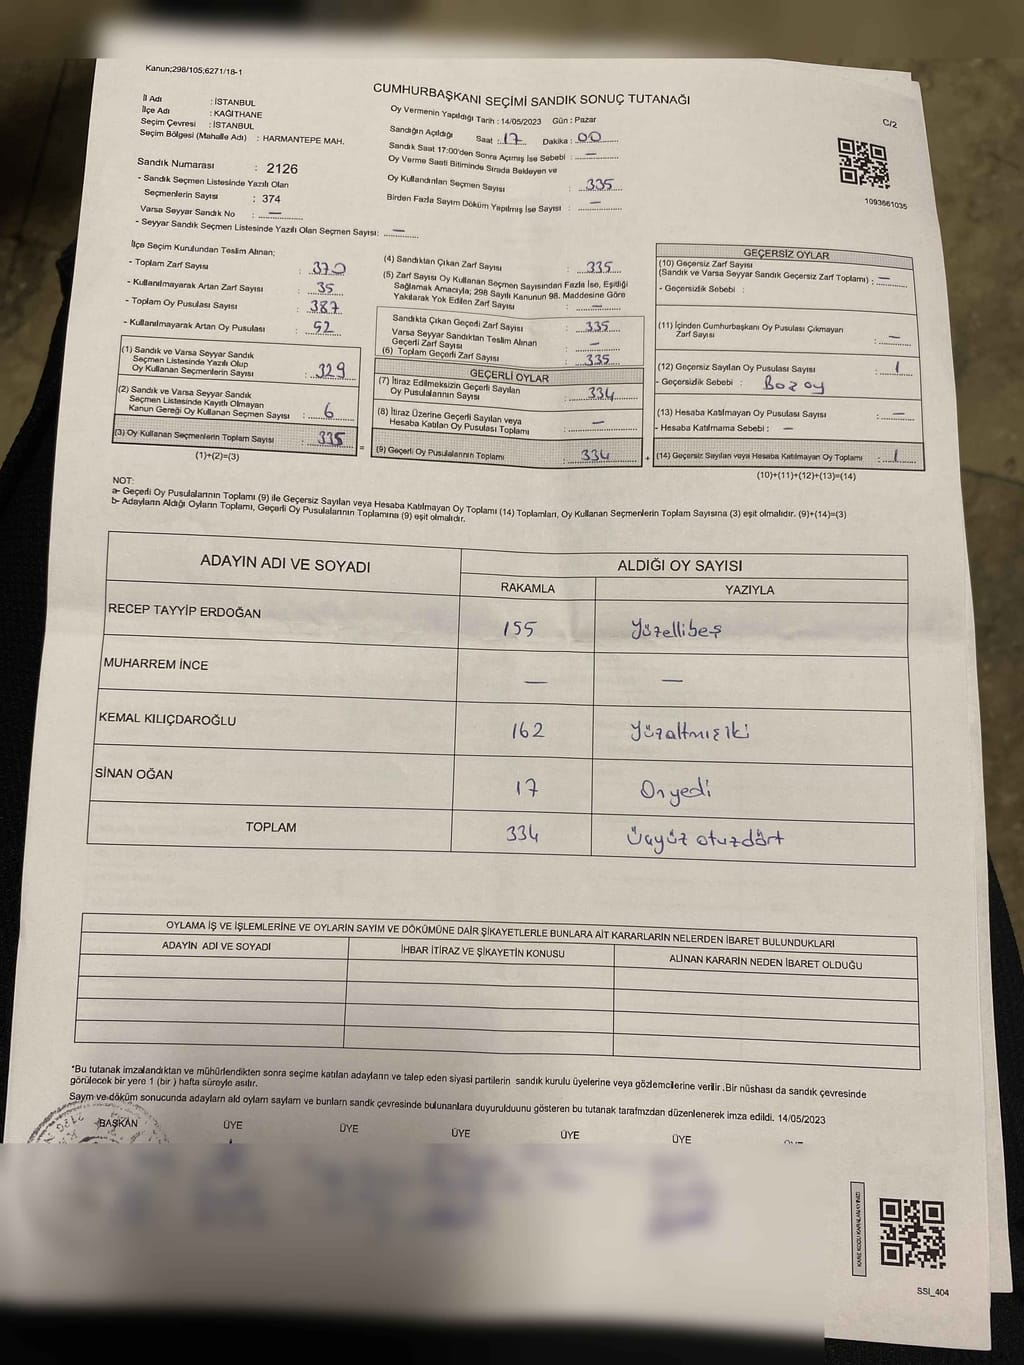 Kanun;298/105;6271/18-1
CUMHURBAŞKANI SEÇİMİ SANDIK SONUÇ TUTANAĞI
C/2
1093661035
İl Adı : İSTANBUL
İlçe Adı : KAGITHANE
Seçim Çevresi : İSTANBUL
Seçim Bölgesi (Mahalle Adı) : HARMANTEPE MAH.
Sandık Numarası : 2126
- Sandık Seçmen Listesinde Yazılı Olan
Seçmenlerin Sayısı : 374
Varsa Seyyar Sandık No : —
- Seyyar Sandık Seçmen Listesinde Yazılı Olan Seçmen Sayısı: —
Oy Vermenin Yapıldığı Tarih : 14/05/2023 Gün : Pazar
Sandığın Açıldığı Saat : 17 Dakika : 00
Sandık Saat 17:00'den Sonra Açımış İse Sebebi : —
Oy Verme Saati Bitiminde Sırada Bekleyen ve
Oy Kullandırılan Seçmen Sayısı : 335
Birden Fazla Sayım Döküm Yapılmış İse Sayısı : —
İlçe Seçim Kurulundan Teslim Alınan;
- Toplam Zarf Sayısı : 370
- Kullanılmayarak Artan Zarf Sayısı : 35
- Toplam Oy Pusulası Sayısı : 387
- Kullanılmayarak Artan Oy Pusulası : 52
(1) Sandık ve Varsa Seyyar Sandık
Seçmen Listesinde Yazılı Olup
Oy Kullanan Seçmenlerin Sayısı : 329
(2) Sandık ve Varsa Seyyar Sandık
Seçmen Listesinde Kayıtlı Olmayan
Kanun Gereği Oy Kullanan Seçmen Sayısı : 6
(3) Oy Kullanan Seçmenlerin Toplam Sayısı : 335
(1)+(2)=(3)
(4) Sandıktan Çıkan Zarf Sayısı : 335
(5) Zarf Sayısı Oy Kullanan Seçmen Sayısından Fazla İse, Eşitliği
Sağlamak Amacıyla; 298 Sayılı Kanunun 98. Maddesine Göre
Yakılarak Yok Edilen Zarf Sayısı : —
Sandıkta Çıkan Geçerli Zarf Sayısı : 335
Varsa Seyyar Sandıktan Teslim Alınan
Geçerli Zarf Sayısı : —
(6) Toplam Geçerli Zarf Sayısı : 335
GEÇERLİ OYLAR
(7) İtiraz Edilmeksizin Geçerli Sayılan
Oy Pusulalarının Sayısı : 334
(8) İtiraz Üzerine Geçerli Sayılan veya
Hesaba Katılan Oy Pusulası Toplamı : —
= (9) Geçerli Oy Pusulalarının Toplamı : 334
GEÇERSİZ OYLAR
(10) Geçersiz Zarf Sayısı
(Sandık ve Varsa Seyyar Sandık Geçersiz Zarf Toplamı) : —
- Geçersizlik Sebebi :
(11) İçinden Cumhurbaşkanı Oy Pusulası Çıkmayan
Zarf Sayısı : —
(12) Geçersiz Sayılan Oy Pusulası Sayısı : 1
- Geçersizlik Sebebi : Boz oy
(13) Hesaba Katılmayan Oy Pusulası Sayısı : —
- Hesaba Katılmama Sebebi : —
+ (14) Geçersiz Sayılan veya Hesaba Katılmayan Oy Toplamı : 1
(10)+(11)+(12)+(13)=(14)
NOT:
a- Geçerli Oy Pusulalarının Toplamı (9) ile Geçersiz Sayılan veya Hesaba Katılmayan Oy Toplamı (14) Toplamları, Oy Kullanan Seçmenlerin Toplam Sayısına (3) eşit olmalıdır. (9)+(14)=(3)
b- Adayların Aldığı Oyların Toplamı, Geçerli Oy Pusulalarının Toplamına (9) eşit olmalıdır.
ADAYIN ADI VE SOYADI ALDIĞI OY SAYISI
RAKAMLA YAZIYLA
RECEP TAYYİP ERDOĞAN 155 Yüzellibeş
MUHARREM İNCE — —
KEMAL KILIÇDAROĞLU 162 Yüzaltmışiki
SİNAN OĞAN 17 Onyedi
TOPLAM 334 Üçyüz otuzdört
OYLAMA İŞ VE İŞLEMLERİNE VE OYLARIN SAYIM VE DÖKÜMÜNE DAİR ŞİKAYETLERLE BUNLARA AİT KARARLARIN NELERDEN İBARET BULUNDUKLARI
ADAYIN ADI VE SOYADI İHBAR İTİRAZ VE ŞİKAYETİN KONUSU ALINAN KARARIN NEDEN İBARET OLDUĞU
*Bu tutanak imzalandıktan ve mühürlendikten sonra seçime katılan adayların ve talep eden siyasi partilerin sandık kurulu üyelerine veya gözlemcilerine verilir.Bir nüshası da sandık çevresinde
görülecek bir yere 1 (bir) hafta süreyle asılır.
Sayım ve döküm sonucunda adayların ald oyların sayları ve bunların sandk çevresinde bulunanlara duyurulduunu gösteren bu tutanak tarafmzdan düzenlenerek imza edildi. 14/05/2023
BAŞKAN ÜYE ÜYE ÜYE ÜYE ÜYE
KARE KODU KARALAMAYINIZ!
SSI_404